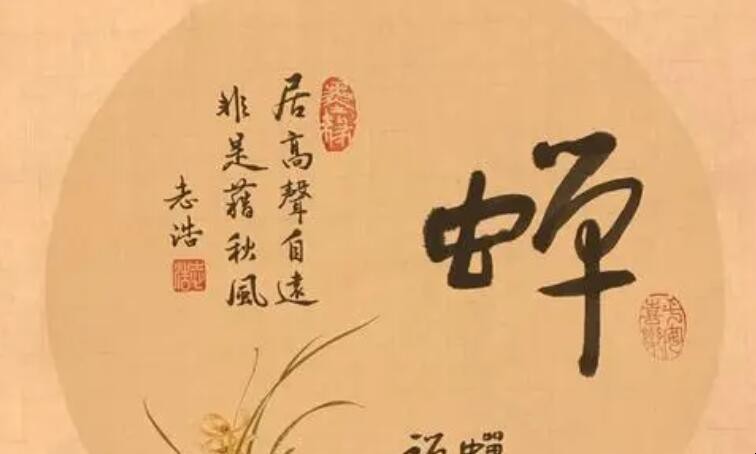 蝉
居高聲自遠
非是藉秋風
志浩